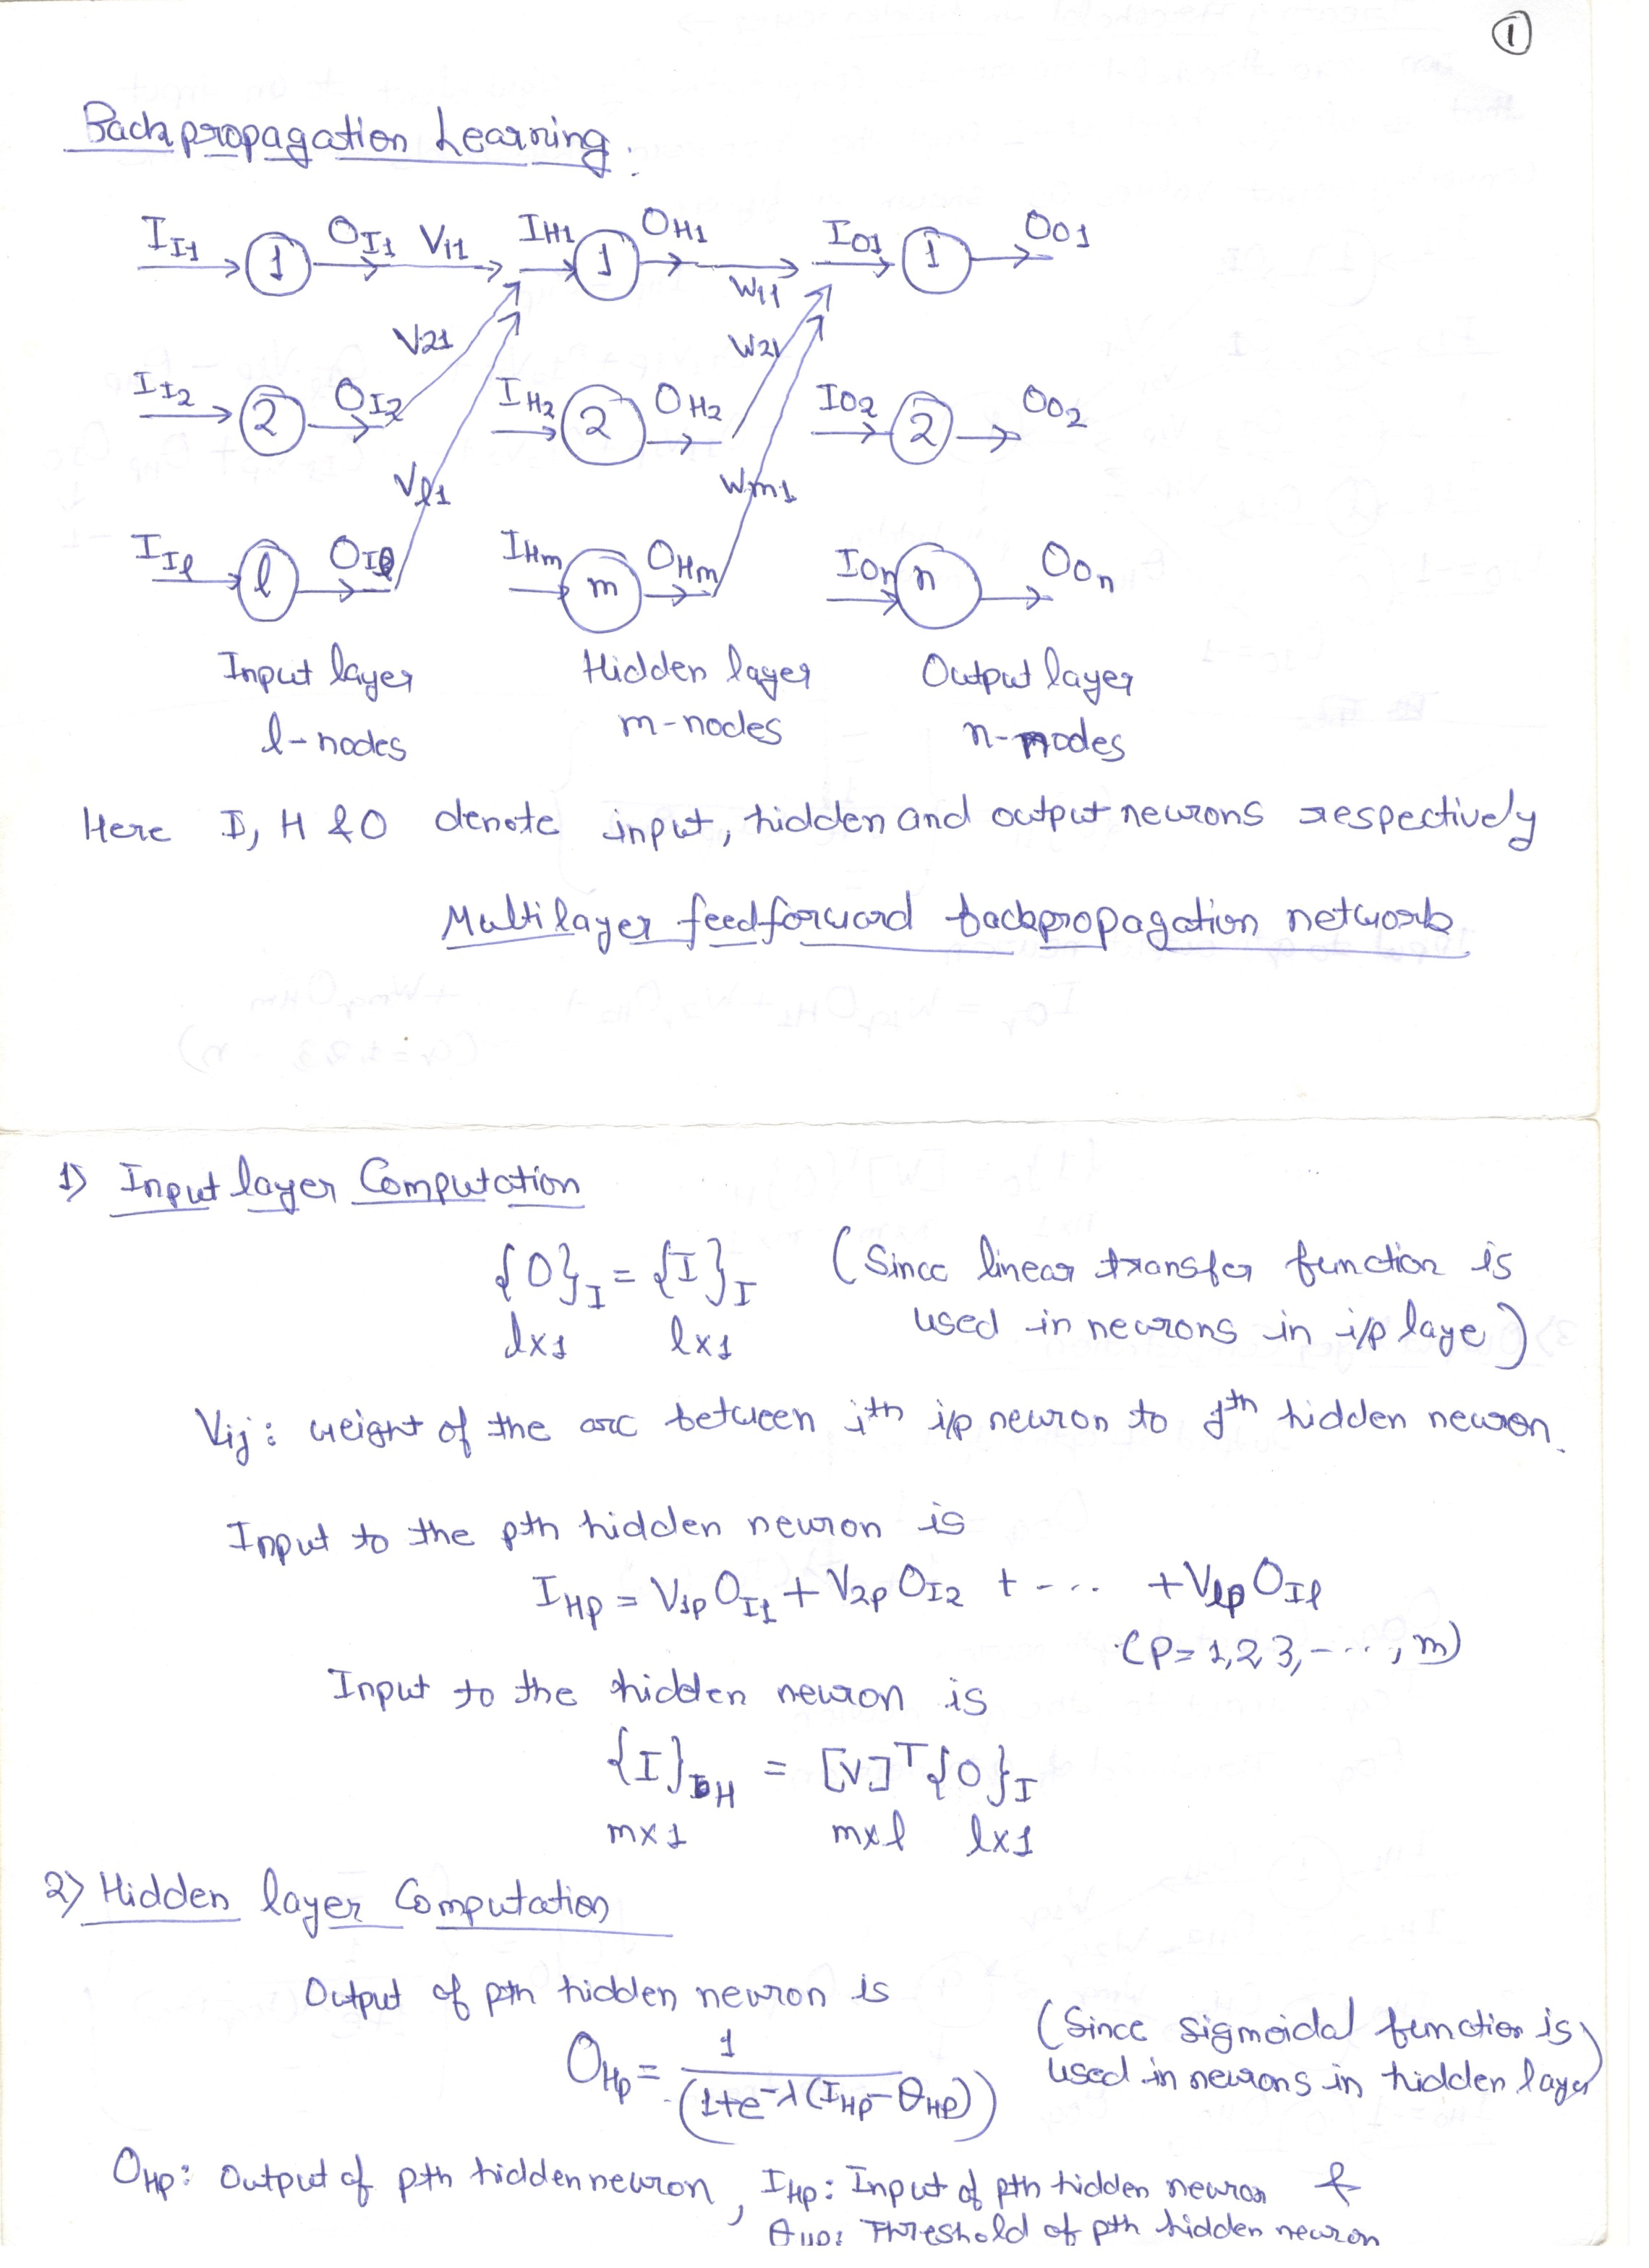 1
Backpropagation Learning.
I_I1 1 O_I1 V11 I_H1 1 O_H1 W11 I_O1 1 O_O1
V21 W21
I_I2 2 O_I2 I_H2 2 O_H2 I_O2 2 O_O2
Vl1 Wm1
I_Il l O_Il I_Hm m O_Hm I_On n O_On
Input layer Hidden layer Output layer
l-nodes m-nodes n-nodes
Here I, H & O denote input, hidden and output neurons respectively
Multilayer feedforward backpropagation network
1) Input layer Computation
{O}_I = {I}_I (Since linear transfer function is
l×1 l×1 used in neurons in i/p laye)
Vij : weight of the arc between ith i/p neuron to jth hidden neuron.
Input to the pth hidden neuron is
I_Hp = V1p O_I1 + V2p O_I2 + - ... + Vlp O_Il
(p = 1,2 3, - ... , m)
Input to the hidden neuron is
{I}_H = [V]^T {O}_I
m×1 m×l l×1
2) Hidden layer Computation
Output of pth hidden neuron is
O_Hp = 1 / (1+e^-λ(I_Hp - θ_HP)) (Since sigmoidal function is
used in neurons in hidden layer)
O_Hp : Output of pth hidden neuron, I_Hp : Input of pth hidden neuron &
θ_HP: Threshold of pth hidden neuron